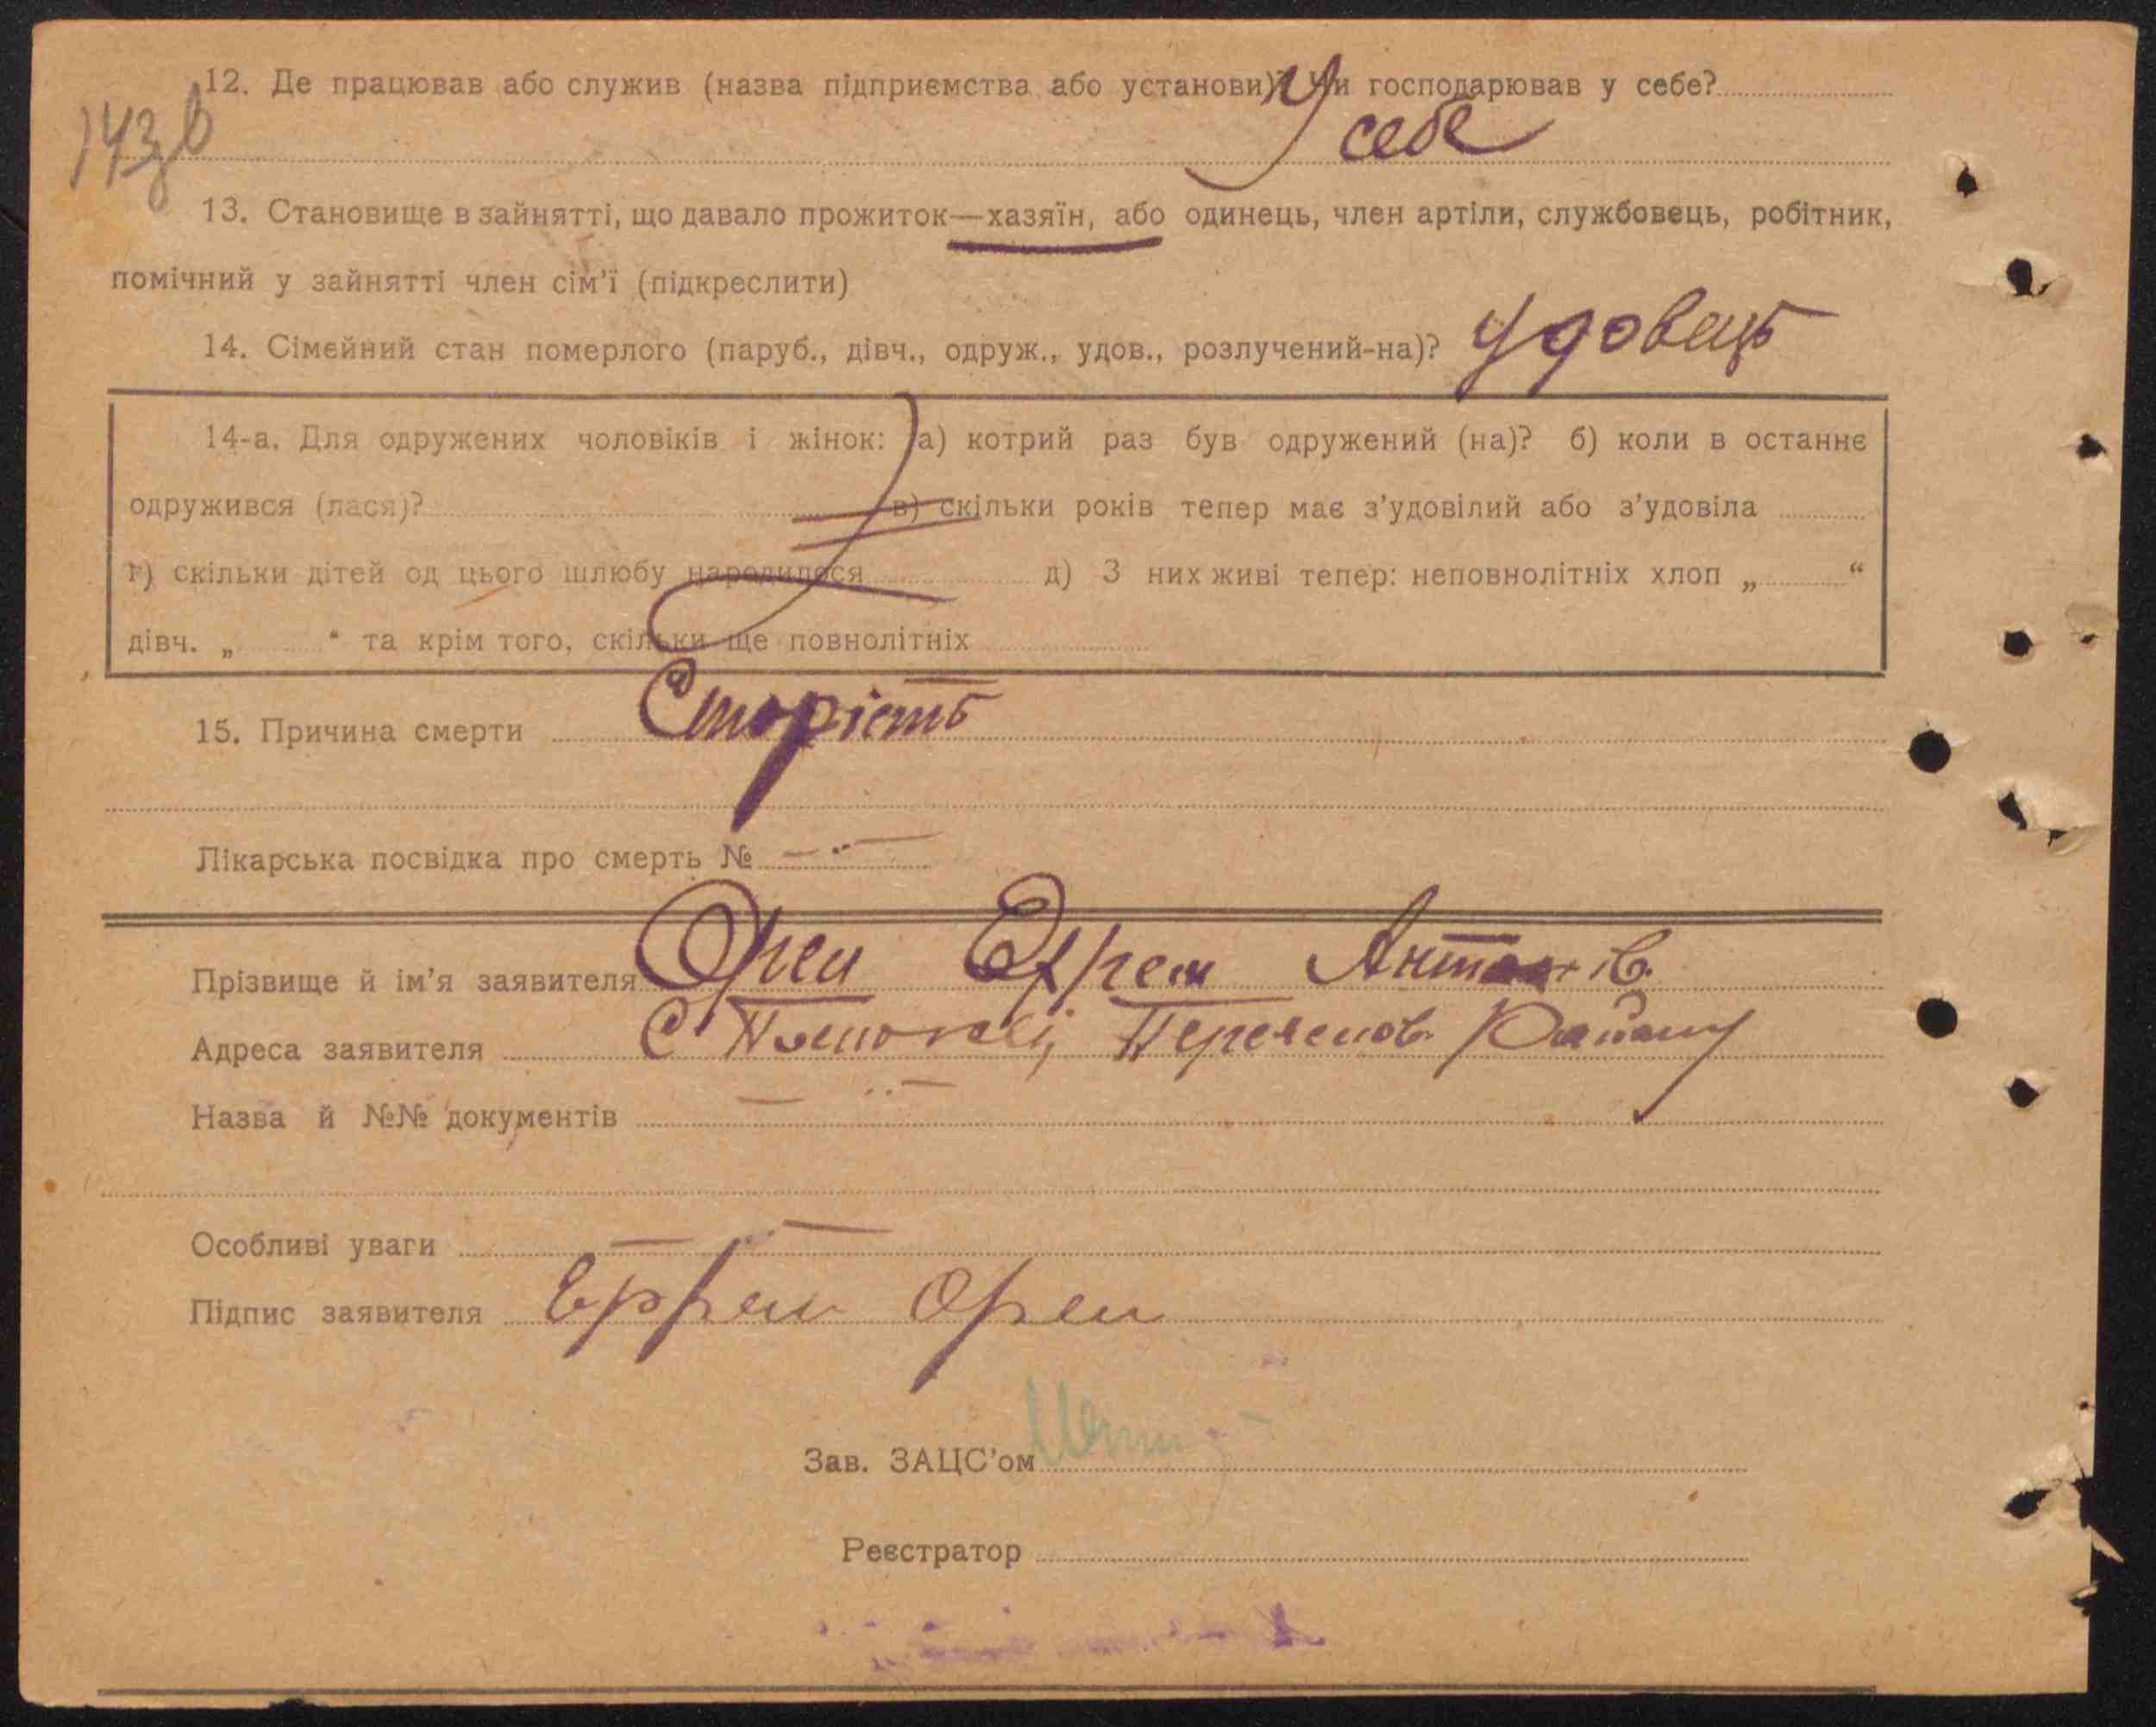 143 в
12. Де працював або служив (назва підприємства або установи)? Чи господарював у себе?
У себе
13. Становище в зайнятті, що давало прожиток—хазяїн, або одинець, член артіли, службовець, робітник,
помічний у зайнятті член сім'ї (підкреслити)
14. Сімейний стан померлого (паруб., дівч., одруж., удов., розлучений-на)? Удовець
14-а. Для одружених чоловіків і жінок: а) котрий раз був одружений (на)? б) коли в останнє
одружився (лася)? в) скільки років тепер має з'удовілий або з'удовіла
г) скільки дітей од цього шлюбу народилося д) З них живі тепер: неповнолітніх хлоп „ “
дівч. „ “ та крім того, скільки ще повнолітніх
15. Причина смерти Старість
Лікарська посвідка про смерть №
Прізвище й ім'я заявителя Орел Ефрем Антонів.
Адреса заявителя С Переяслов. Району
Назва й №№ документів
Особливі уваги
Підпис заявителя Орел
Зав. ЗАЦС'ом
Реєстратор